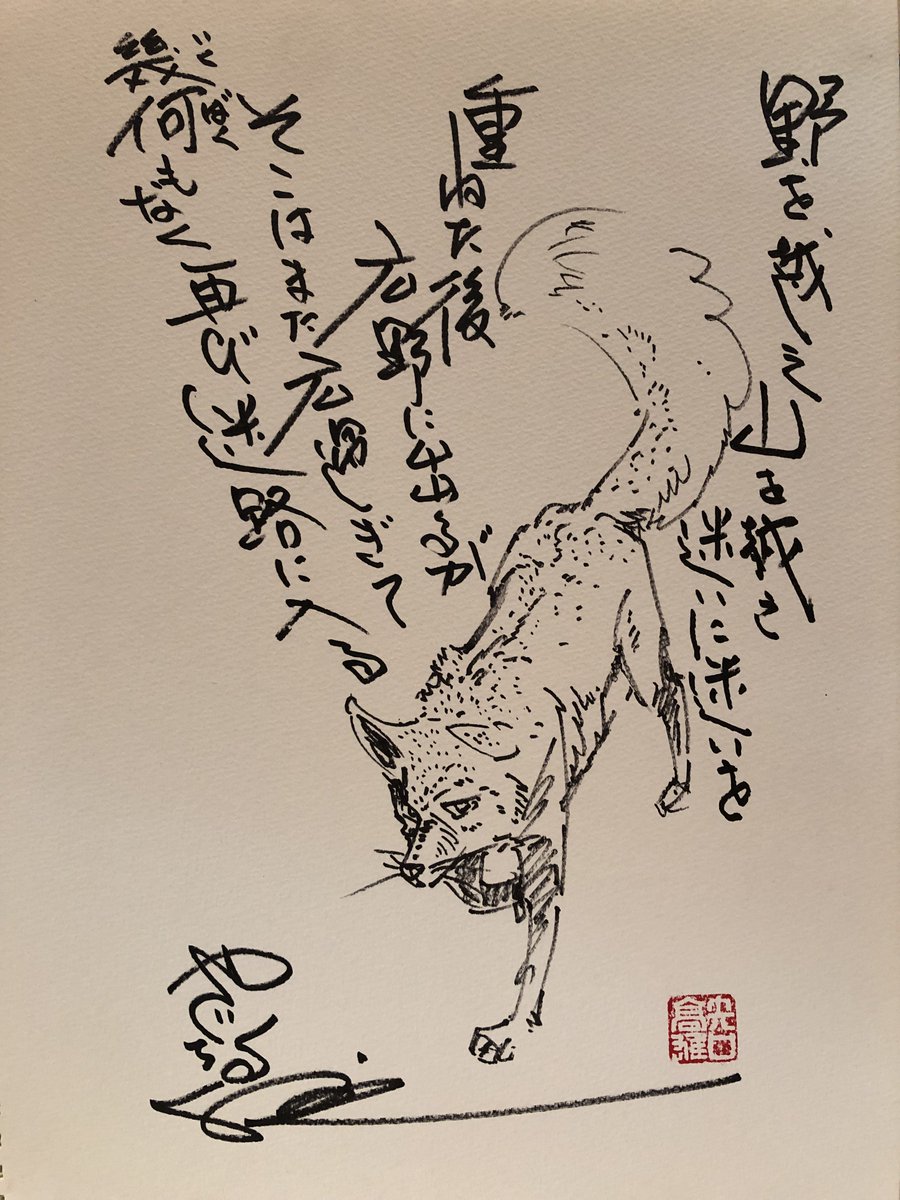 野を越え山を越え
迷いに迷いを
重ねた後
広野に出るが
そこはまた広過ぎて
幾何もなく再び迷い路に入る
いくばく